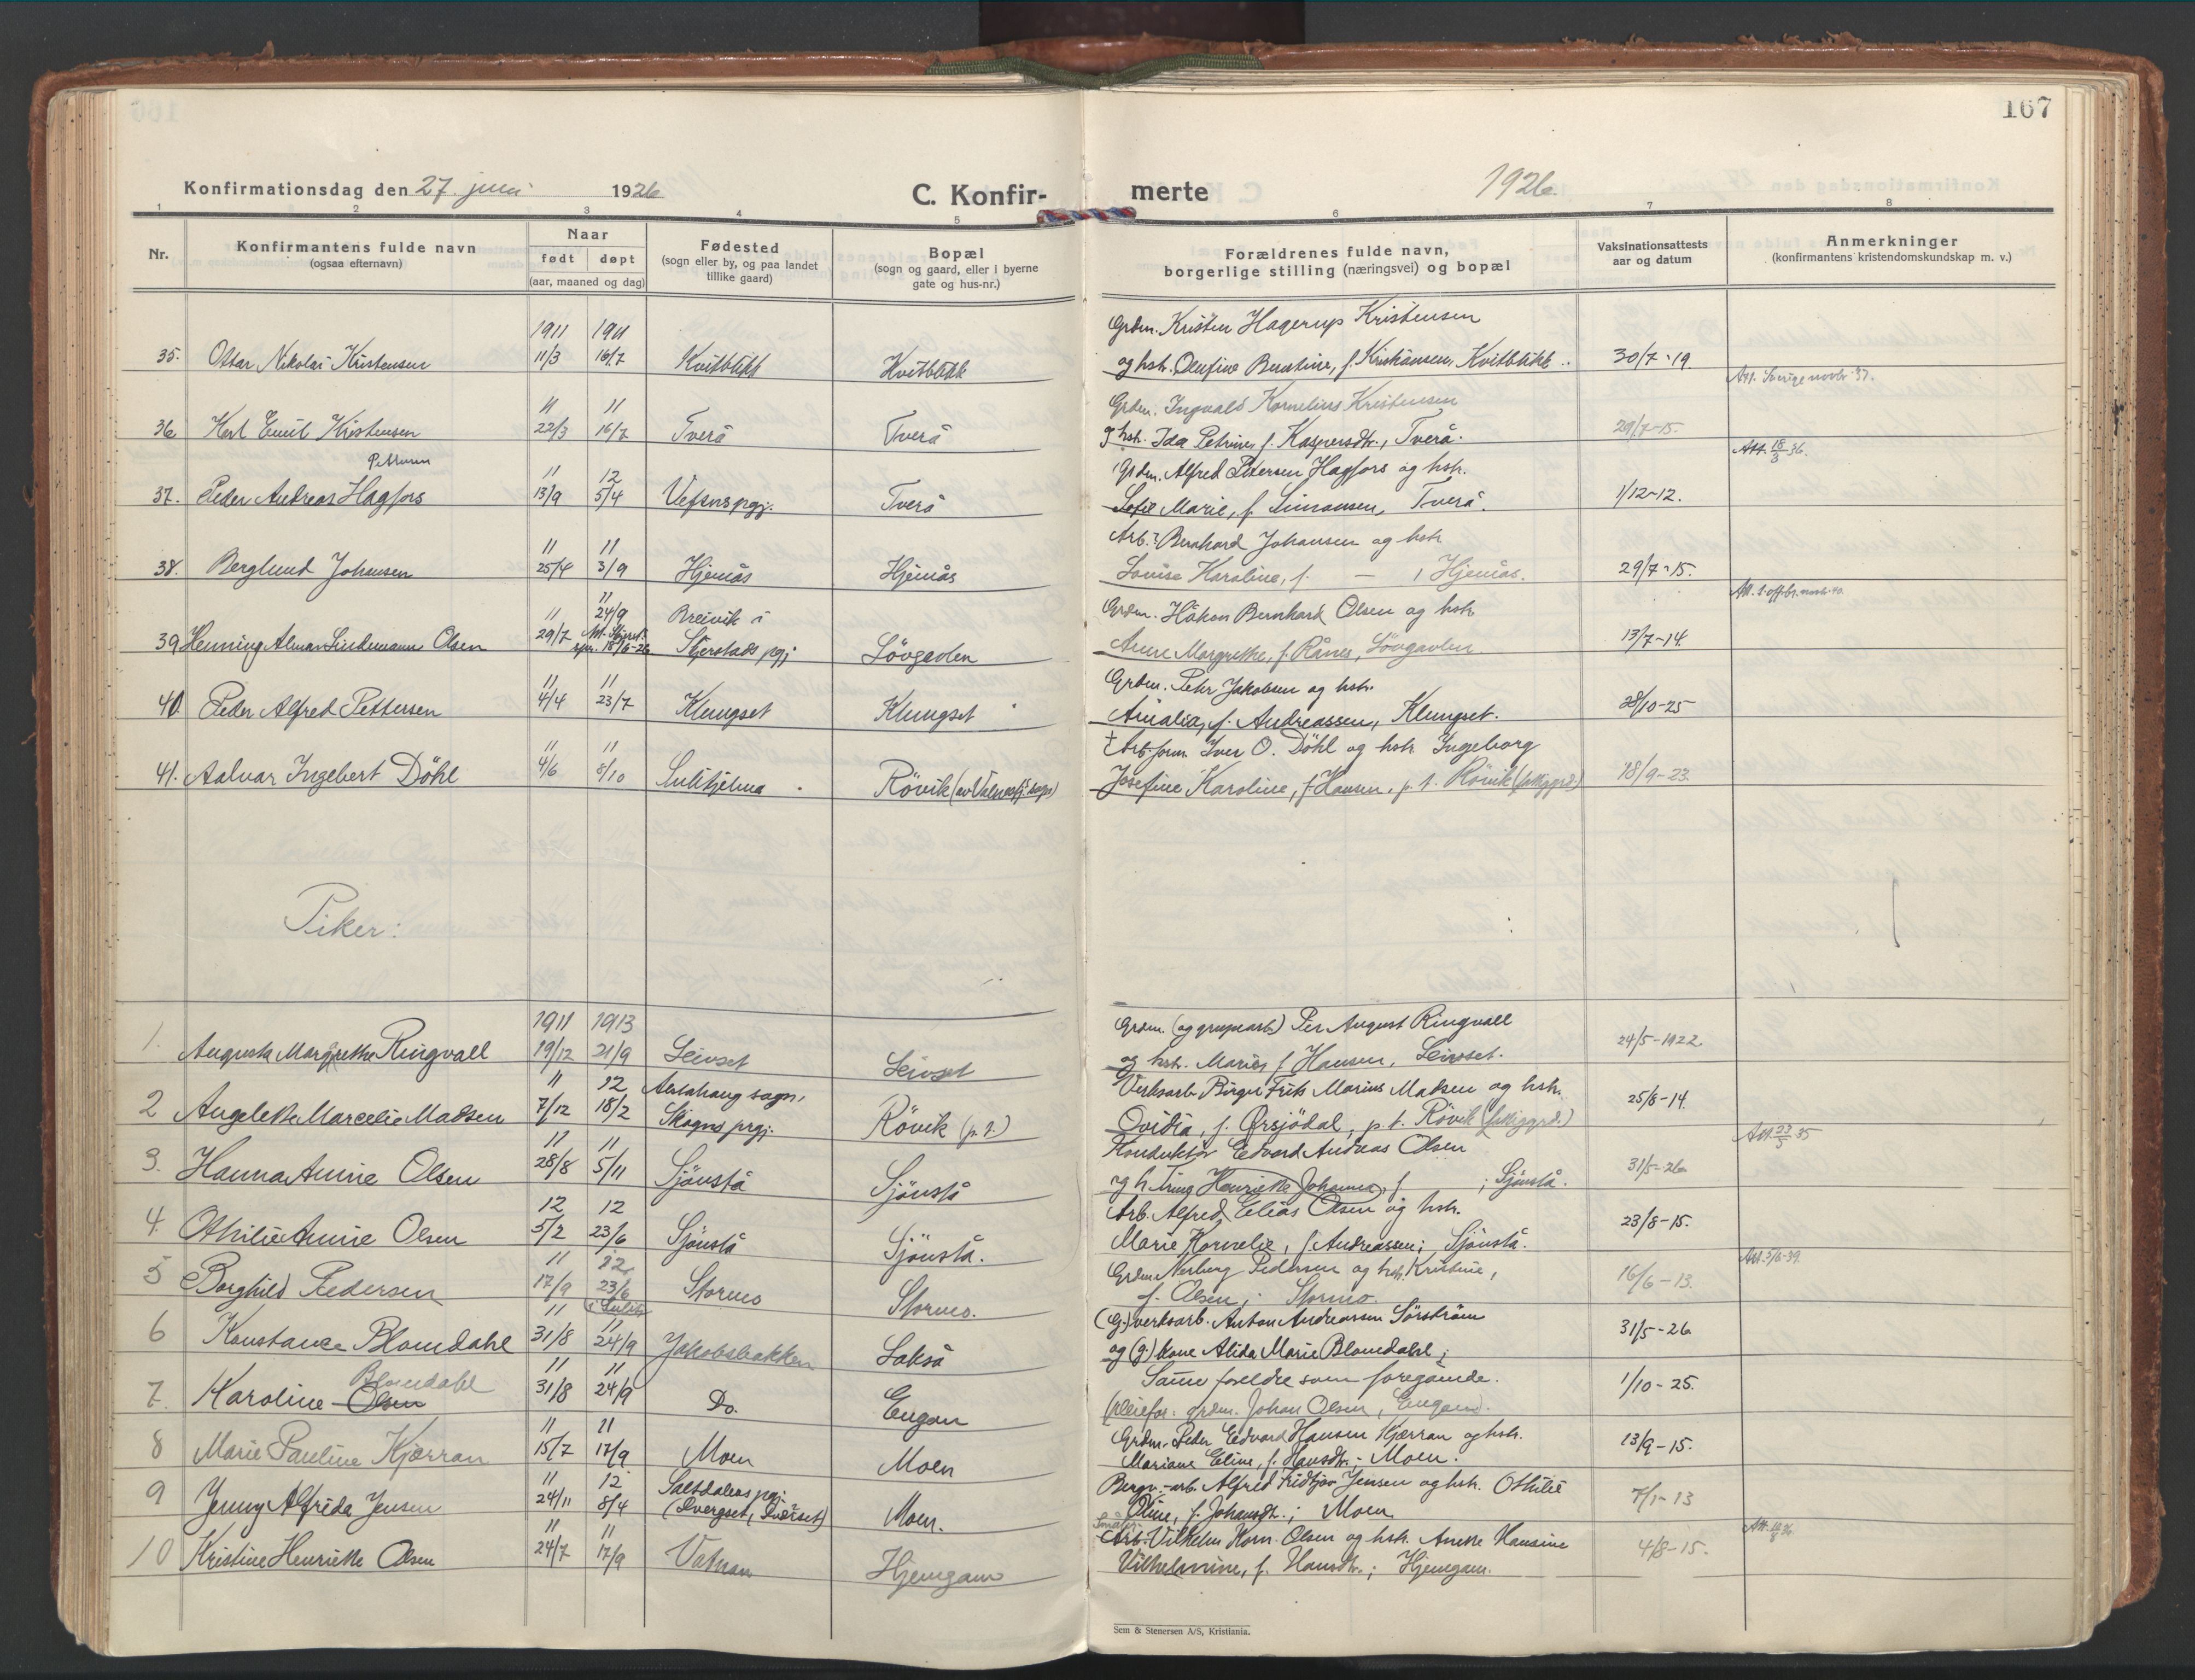 167
Konfirmationsdag den 27. juni 1926
C. Konfir-
merte
1926.
1 2 3 4 5 6 7 8
Nr.
Konfirmantens fulde navn
(ogsaa efternavn)
Naar
født døpt
(aar, maaned og dag)
Fødested
(sogn eller by, og paa landet
tillike gaard)
Bopæl
(sogn og gaard, eller i byerne
gate og hus-nr.)
Forældrenes fulde navn,
borgerlige stilling (næringsvei) og bopæl
Vaksinationsattests
aar og datum
Anmerkninger
(konfirmantens kristendomskundskap m. v.)
1911 1911 Grdm. Kristen Hagerup Kristensen
35. Ottar Nikolai Kristensen 11/3 16/7 Kvitblikk Kvitblikk og hstr. Olufine Berntine, f. Kristiansen, Kvitblikk. 30/7-19.
Att. Sverige novbr. 37.
11 11 Grdm. Ingvald Kornelius Kristensen
36 Karl Emil Kristensen 22/3 16/7 Tverå Tverå og hstr. Ida Petrine, f. Kaspersdtr., Tverå. 29/7-15.
Att. 18/3 36.
Pettersen 11 12 Grdm. Alfred Petersen Hagfors og hstr.
37. Peder Andreas Hagfors 13/9 5/4 Vefsns pgj. Tverå Sofie Marie, f. Simonsen, Tverå. 1/12-12.
11 11 Arb. Bernhard Johansen og hstr
38. Berglund Johansen 25/4 3/9 Hjemås Hjemås Lovise Karoline, f. — , Hjemås. 29/7-15.
11 11 24/9 Breivik i Grdm. Håkon Bernhard Olsen og hstr
39 Henning Almar Lindemann Olsen 29/7 18/6-26 Skjerstads pgj Lövgavlen Anne Margrethe, f. Rånes, Lövgavlen 13/7-14.
11 11 Grdm. Petr Jakobsen og hstr.
40 Peder Alfred Pettersen 4/4 23/7 Klungset Klungset Amalia, f. Andreassen, Klungset. 28/10-25
11 11 Arb.form. Iver O. Döhl og hstr Ingeborg
41. Aalvar Ingebert Döhl 4/6 8/10 Sulitjelma Rövik (av Valnesfj. sogn) Josefine Karoline, f Hansen, p. t. Rövik (fattiggrd.) 18/9-23.
Piker:
1911 1913 Grdm. (og gruvearb) Per August Ringvall
1. Augusta Margrethe Ringvall 19/12 21/9 Leivset Leivset og hstr. Marie, f Hansen, Leivset. 24/5-1922.
11 12 sogn, Verksarb. Birger Frits Marius Madsen og hstr.
2 Angelette Marcelie Madsen 7/12 18/2 Skogns prgj. Rövik (p.t.) Ovidia, f. Ørsjödal, p. t. Rövik (fattiggrd.) 25/6-14.
Att. 23/3 35
11 11 Konduktör Edvard Andreas Olsen
3. Hanna Annie Olsen 28/8 5/11 Sjönstå Sjönstå og h. Henriette Johanna, f ; Sjönstå. 31/5-26
12 12 Arb. Alfred Elias Olsen og hstr.
4. Othilie Annie Olsen 5/2 23/6 Sjönstå Sjönstå. Marie Kornelie, f. Andreassen; Sjönstå. 23/8-15.
Att. 5/6-39.
11 12 Grdm. Nerberg Pedersen og hstr. Kristine,
5 Borghild Pedersen 17/9 23/6 Stormo Stormo. f. Olsen; Stormo 16/6-13.
11 11 (g.) verksarb. Anton Andreassen Sörström
6 Konstance Blomdahl 31/8 24/9 Jakobsbakken Lakså og (g) kone Alida Marie Blomdahl; 31/5-26
Blomdahl 11 11 Samme foreldre som foregående.
7. Karoline Olsen 31/8 24/9 Do. Engan (pleiefor: grdm. Johan Olsen, Engan). 1/10-25.
11 11 Grdm. Peder Edvard Hansen Kjærran og hstr.
8 Marie Pauline Kjærran 15/7 17/9 Moen Moen Mariane Eline, f. Hansdtr.; Moen. 13/9-15.
11 12 Saltdalens pgj. Bergv.-arb. Alfred Fridtjov Jensen og hstr. Othilie
9 Jenny Alfrida Jensen 24/11 8/4 (Dvergset, Dverset?) Moen. Oline, f. Johansdtr.; Moen 7/1-13
11 11 Arb. Vilhelm Korn. Olsen og hstr. Anette Hansine
10 Kristine Henrikke Olsen 24/7 17/9 Vatnan Hjemgam Vilhelmine, f. Hansdtr.; Hjemgam. 4/8-15.
Sem & Stenersen A/S, Kristiania.